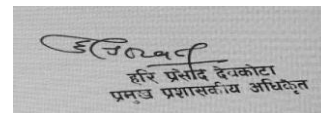 हरि प्रसाद देवकोटा
प्रमुख प्रशासकीय अधिकृत